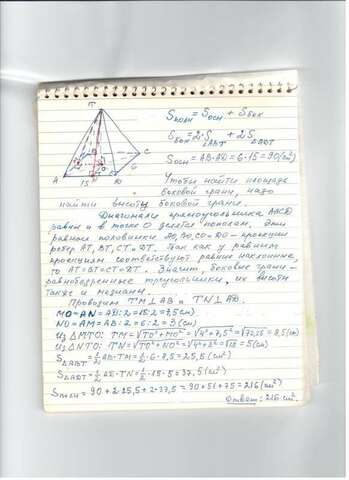 T
C
O
A
15
D
Sполн = Sосн + Sбок
Sбок = 2·S△ABT + 2S△ADT
Sосн = AB·AD = 6·15 = 90 (см²)
Чтобы найти площадь
боковой грани, надо
найти высоту боковой грани.
Диагонали прямоугольника ABCD
равны и в точке O делятся пополам. Эти
равные половинки AO, BO, CO и DO – проекции
ребер AT, BT, CT и DT. Так как у равным
проекциям соответствуют равные наклонные,
то AT=BT=CT=DT. Значит, боковые грани –
равнобедренные треугольники, их высоты
также и медианы.
Проводим TM⊥AB и TN⊥AD.
MO=AN=AD:2=15:2=7,5 (см)
NO=AM=AB:2=6:2=3 (см)
Из △MTO: TM=√TO²+MO²=√4²+7,5²=√72,25=8,5 (см)
Из △NTO: TN=√TO²+NO²=√4²+3²=√25=5 (см)
S△ABT=½AB·TM=½·6·8,5=25,5 (см²)
S△ADT=½AD·TN=½·15·5=37,5 (см²)
Sполн=90+2·25,5+2·37,5=90+51+75=216 (см²)
Ответ: 216 см².